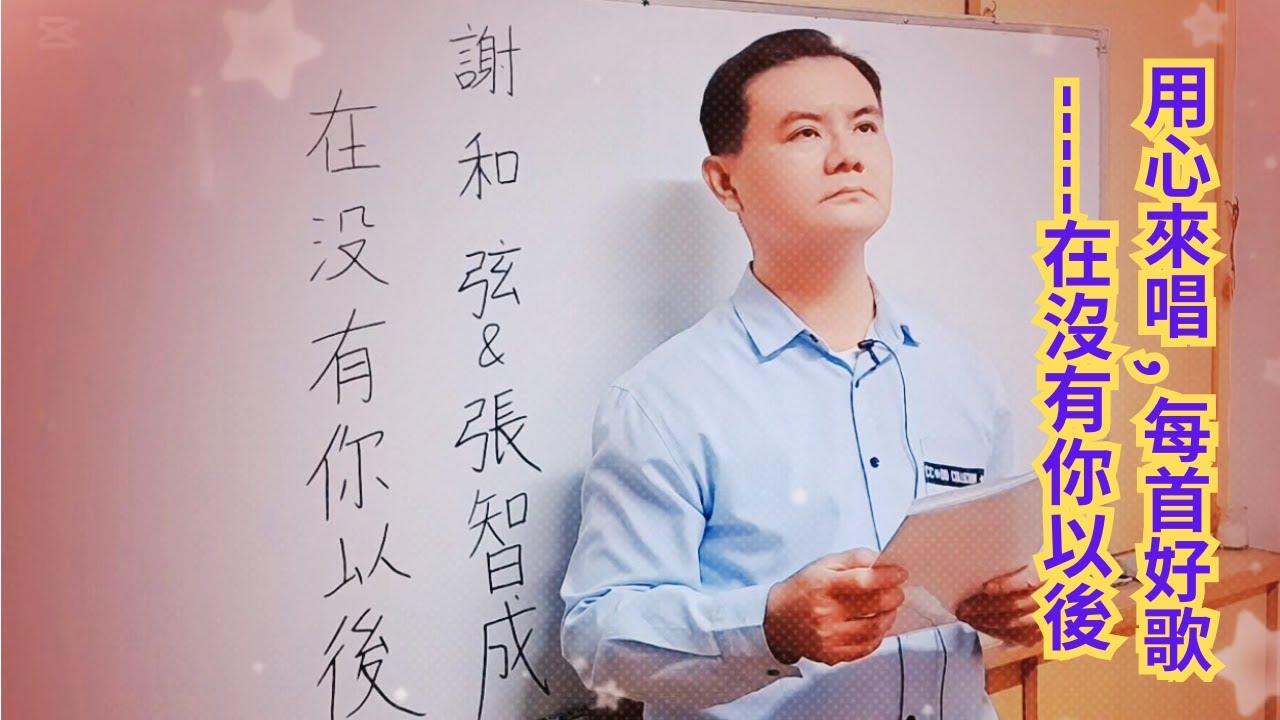 用心來唱,每首好歌
-----在沒有你以後
謝和弦&張智成
在没有你以後